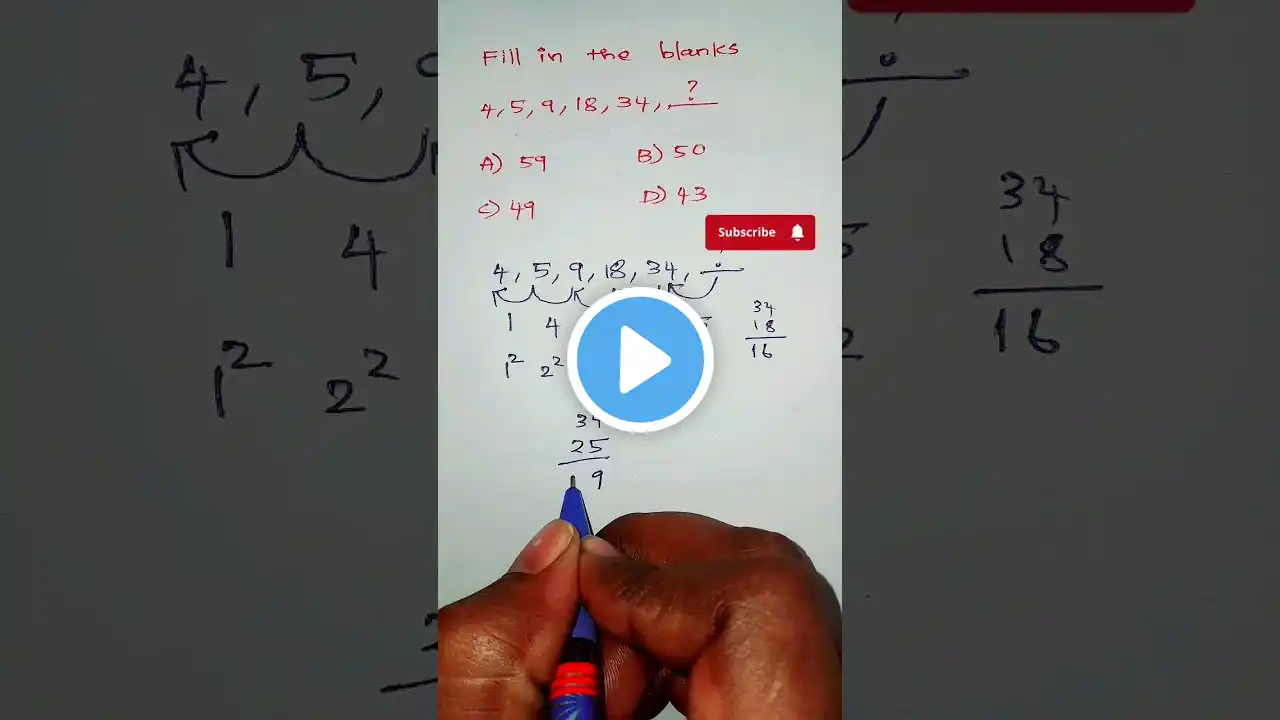 Fill in the blanks
4, 5, 9, 18, 34, ?
A) 59 B) 50
C) 49 D) 43
Subscribe
4, 5, 9, 18, 34, ?
1 4
1² 2²
34
18
16
34
25
9